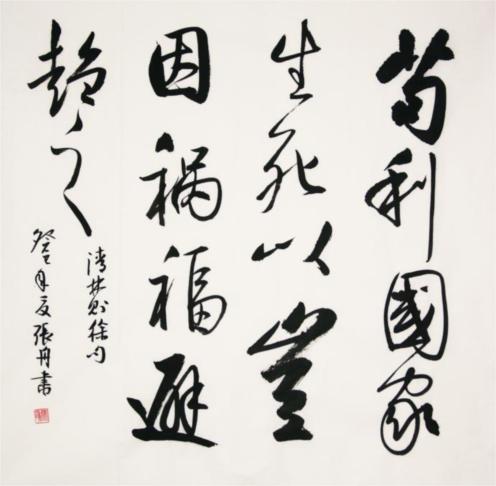 苟利國家
生死以豈
因禍福避
趨之
清林则徐句
癸巳年夏張丹書